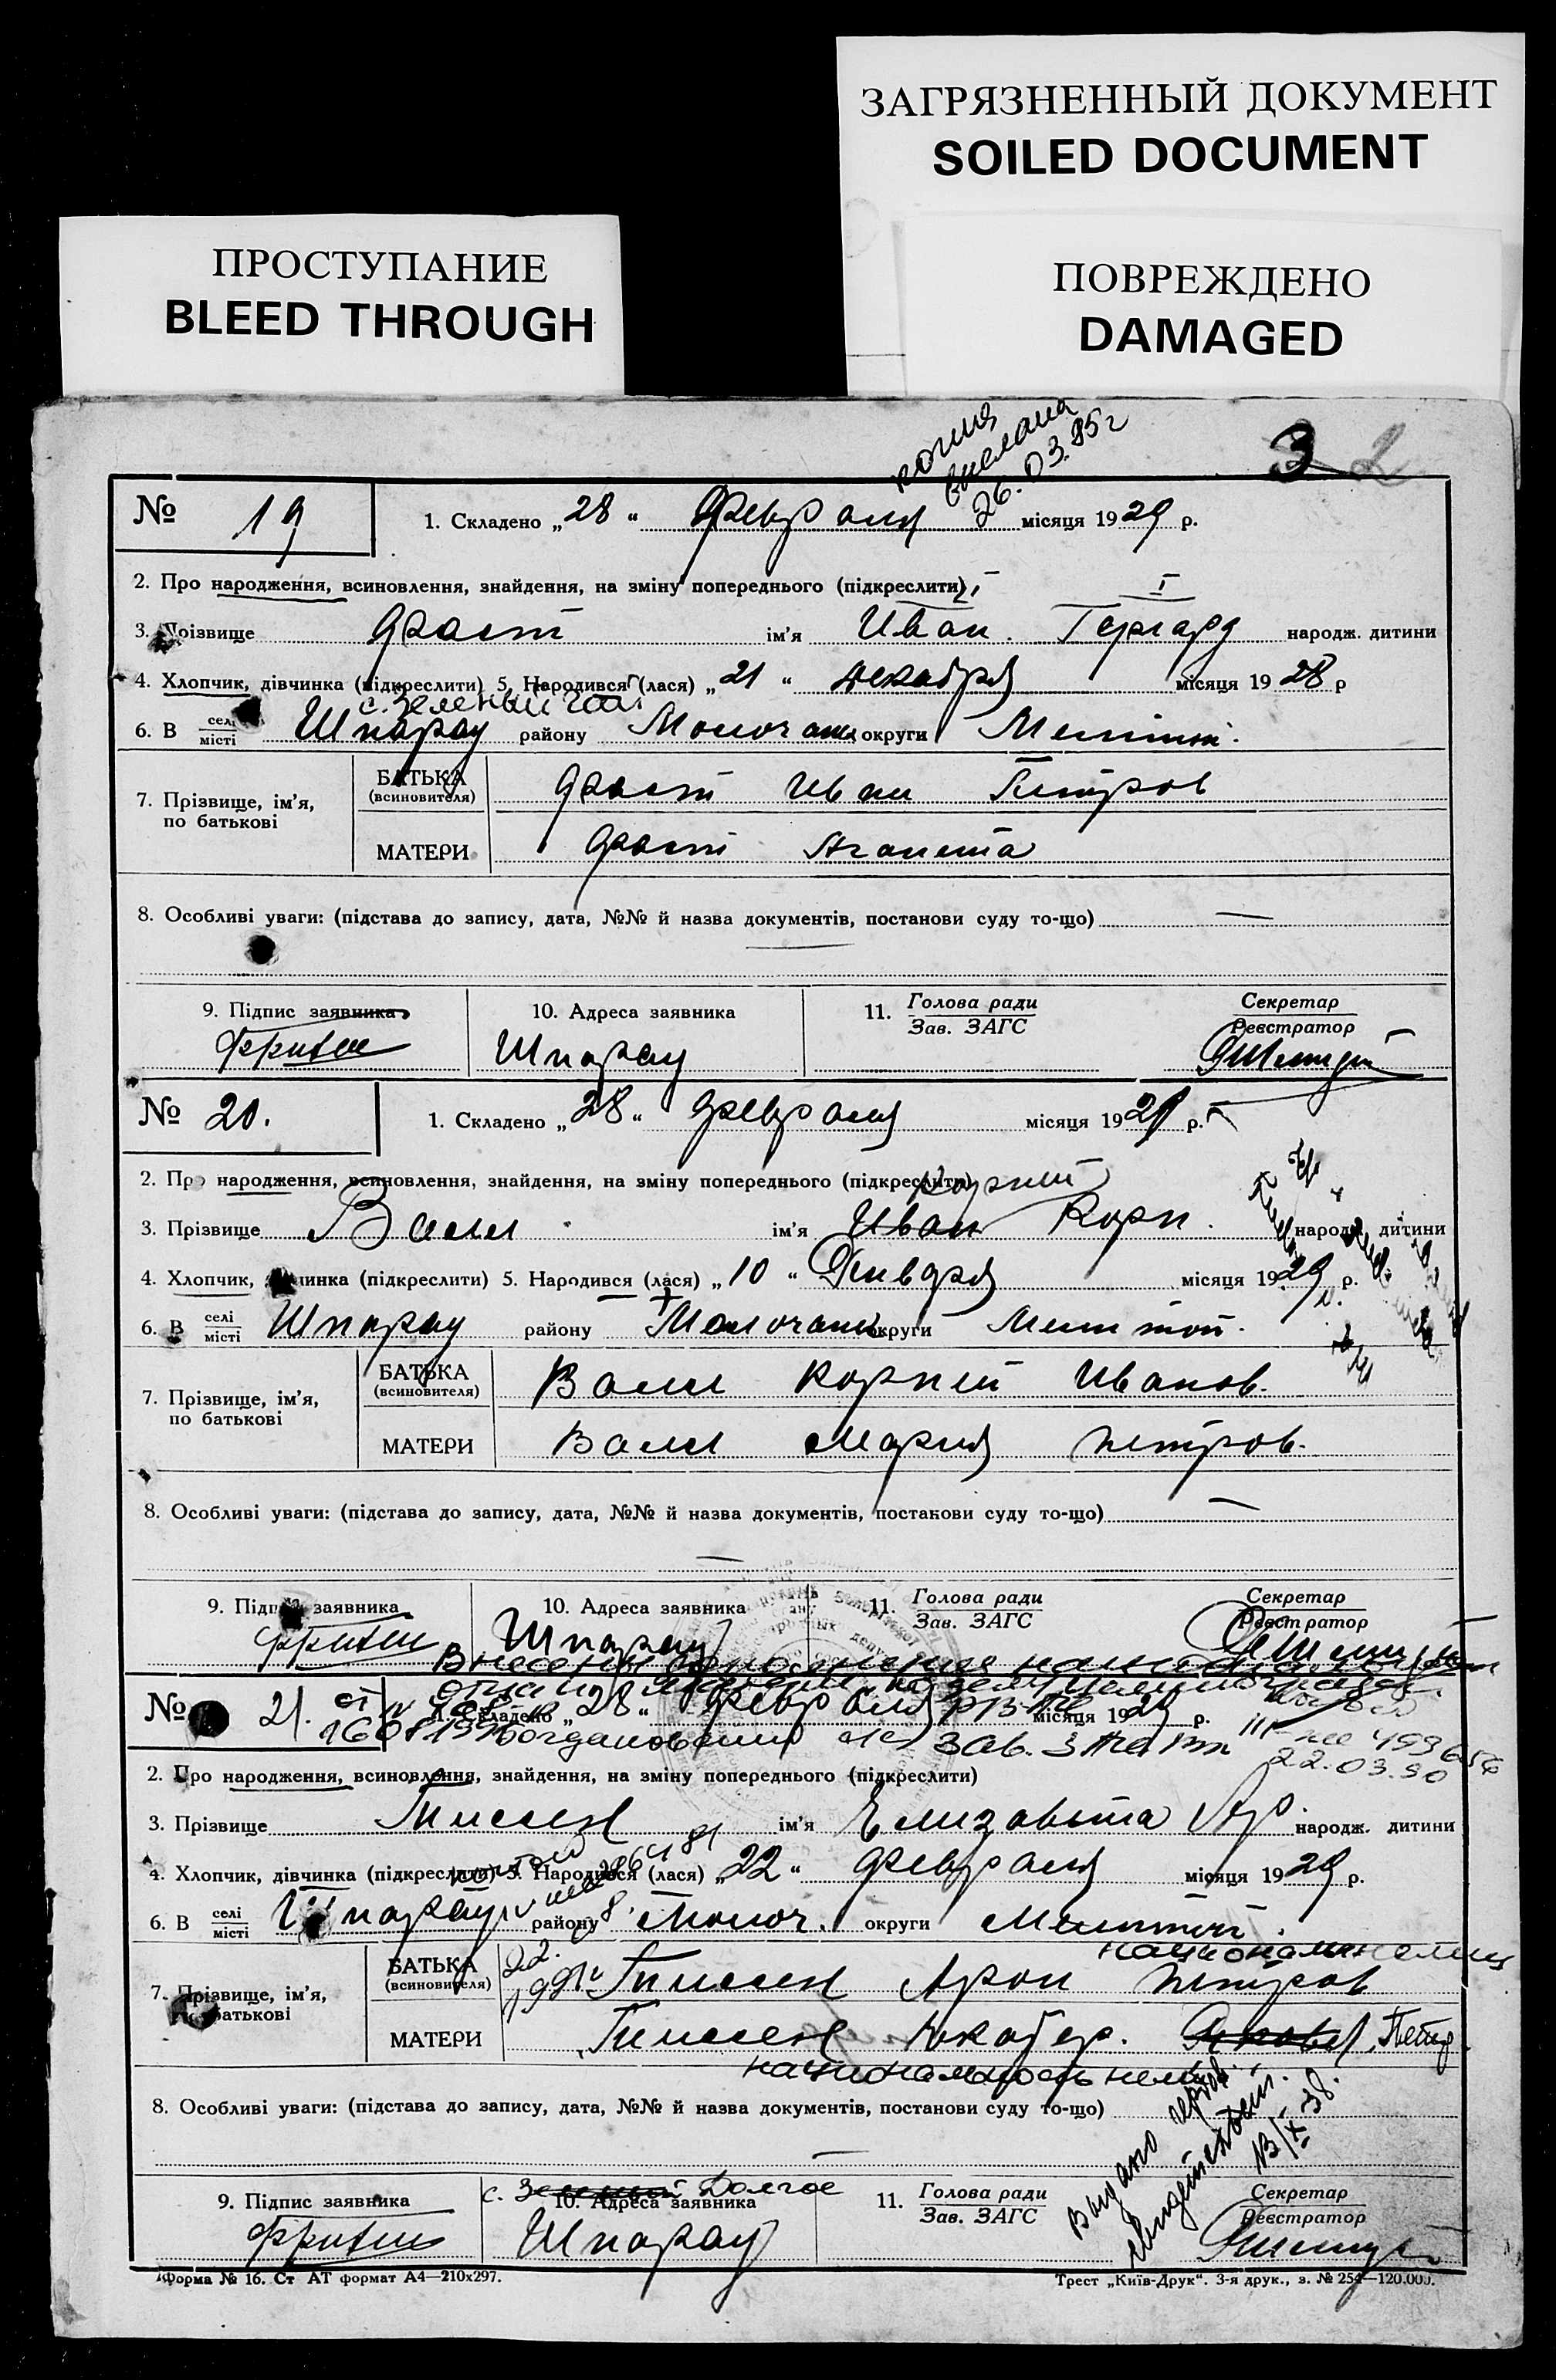 ЗАГРЯЗНЕННЫЙ ДОКУМЕНТ
SOILED DOCUMENT
ПРОСТУПАНИЕ
BLEED THROUGH
ПОВРЕЖДЕНО
DAMAGED
копия
выслана
26.03.85г
3 2
№ 19
1. Складено „28“ Февраля місяця 1929 р.
2. Про народження, всиновлення, знайдення, на зміну попереднього (підкреслити)
3. Прізвище Фаст ім'я Иван. Гергард народж. дитини
4. Хлопчик, дівчинка (підкреслити) 5. Народився (лася) „21“ декабря місяця 1928 р
с. Зеленый Гай
6. В селі/місті Шпарау району Молочан округи Мелітоп.
7. Прізвище, ім'я, по батькові
БАТЬКА (всиновителя) Фаст Иван Петров
МАТЕРИ Фаст Аганета
8. Особливі уваги: (підстава до запису, дата, №№ й назва документів, постанови суду то-що) —
9. Підпис заявника
10. Адреса заявника Шпарау
11. Голова ради Зав. ЗАГС
Секретар Реєстратор
№ 20.
1. Складено „28“ Февраля місяця 1929 р.
2. Про народження, всиновлення, знайдення, на зміну попереднього (підкреслити)
Корней
3. Прізвище Валл ім'я Иван Корн. народж. дитини
4. Хлопчик, дівчинка (підкреслити) 5. Народився (лася) „10“ Января місяця 1929 р.
6. В селі/місті Шпарау району Молочан округи Мелитоп.
7. Прізвище, ім'я, по батькові
БАТЬКА (всиновителя) Валл Корней Иванов.
МАТЕРИ Валл Мария Петров.
8. Особливі уваги: (підстава до запису, дата, №№ й назва документів, постанови суду то-що) —
9. Підпис заявника
10. Адреса заявника Шпарау
11. Голова ради Зав. ЗАГС
Секретар Реєстратор
Внесены дополнения
отца и матери
№ 21.
1. Складено „28“ Февраля місяця 1929 р.
22.03.90
2. Про народження, всиновлення, знайдення, на зміну попереднього (підкреслити)
3. Прізвище Тиссен ім'я Елизавета Ар. народж. дитини
4. Хлопчик, дівчинка (підкреслити) 5. Народився (лася) „22“ Февраля місяця 1929 р.
6. В селі/місті Шпарау району Молоч. округи Мелитоп.
7. Прізвище, ім'я, по батькові
БАТЬКА (всиновителя) Тиссен Арон Петров
МАТЕРИ Тиссен Петр
национальность
8. Особливі уваги: (підстава до запису, дата, №№ й назва документів, постанови суду то-що)
Выдано
9. Підпис заявника
с. Долгое
10. Адреса заявника Шпарау
11. Голова ради Зав. ЗАГС
Секретар Реєстратор
Форма № 16. Ст АТ формат А4—210х297.
Трест „Київ-Друк“. 3-я друк., з. № 254—120.000.